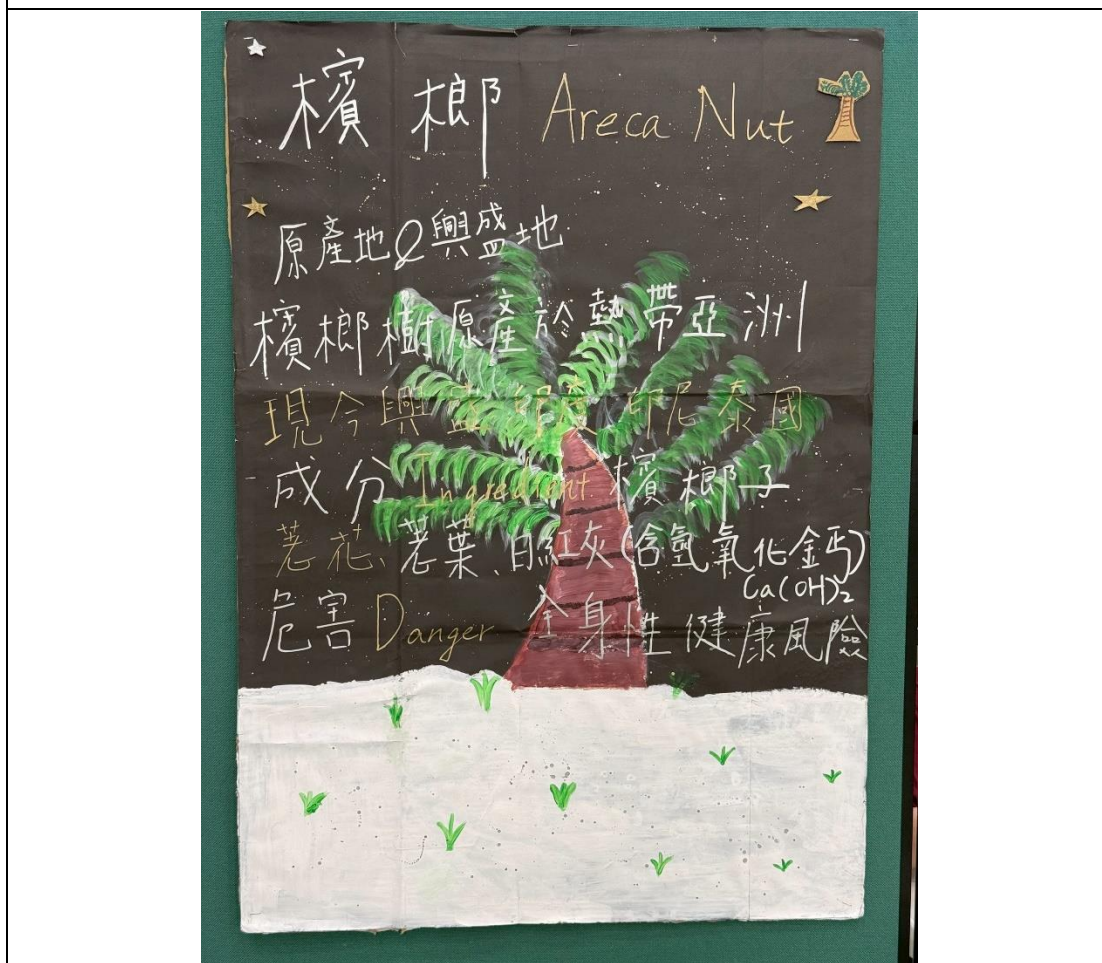 檳榔 Areca Nut
原產地&興盛地
檳榔樹原產於熱帶亞洲
現今興盛印度印尼泰國
成分 Ingredient 檳榔子
荖花、荖葉、白紅灰(含氫氧化鈣)
Ca(OH)₂
危害 Danger 全身性健康風險